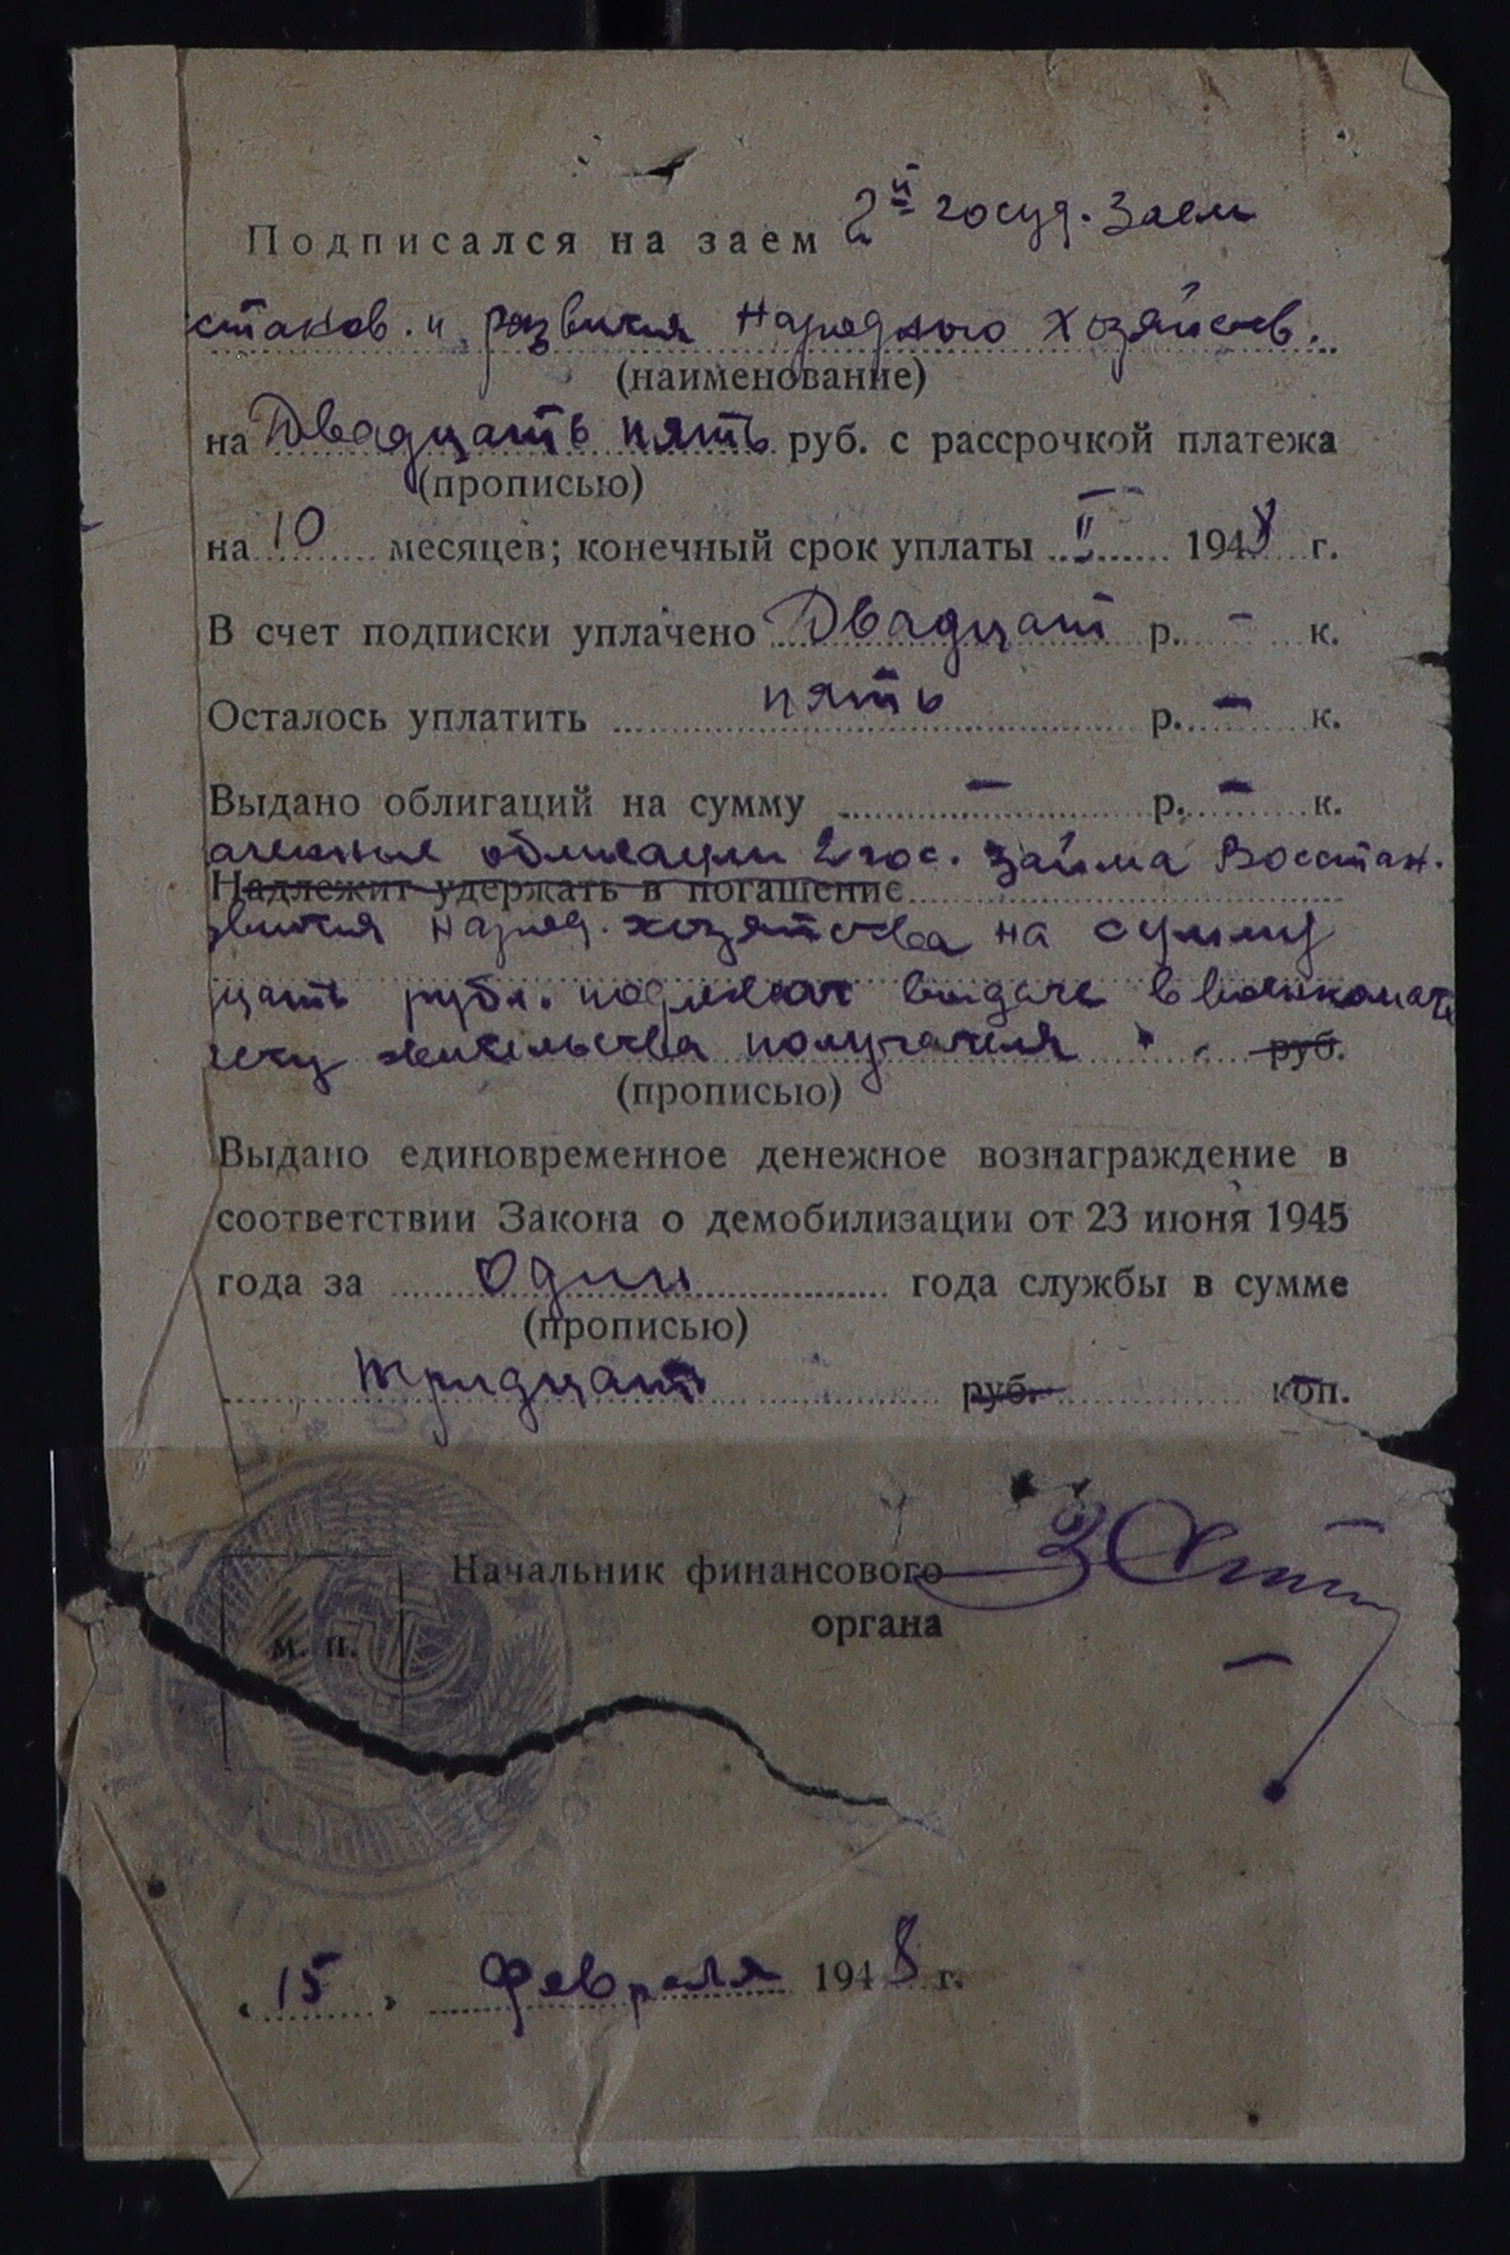 Подписался на заем 2й госуд. Заем
станов. и развития Народного Хозяйств.
(наименование)
на Двадцать пять руб. с рассрочкой платежа
(прописью)
на 10 месяцев; конечный срок уплаты II 1948 г.
В счет подписки уплачено Двадцат р. - к.
Осталось уплатить пять р. - к.
Выдано облигаций на сумму - р. - к.
аченные облигации 2 гос. займа Восстан.
Надлежит удержать в погашение
звития народ. хозяйства на сумму
цать рубл. подлежат выдаче в военкомате
еску жительства получателя руб.
(прописью)
Выдано единовременное денежное вознаграждение в
соответствии Закона о демобилизации от 23 июня 1945
года за один года службы в сумме
(прописью)
тридцат руб. коп.
Начальник финансового
органа
м. п.
15 февраля 1948 г.